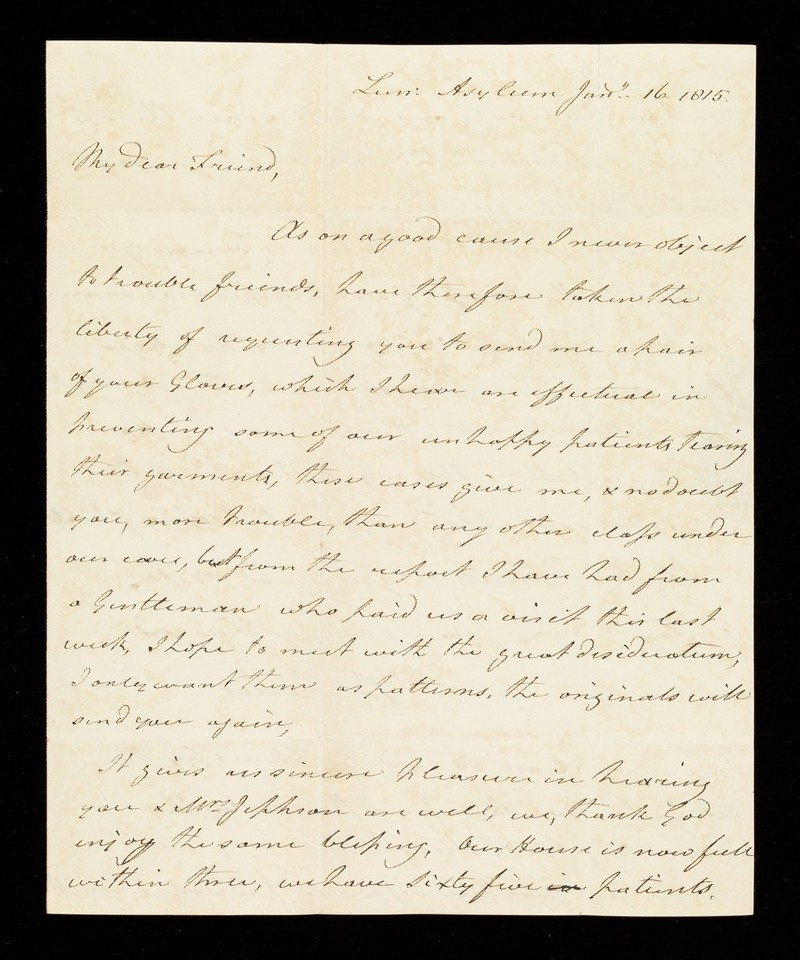 Lun: Asylum Jany. 16 1815.
My dear Friend,
As on a good cause I never object
to trouble friends, have therefore taken the
liberty of requesting you to send me a pair
of your Gloves, which I hear are effectual in
preventing some of our unhappy patients tearing
their garments, these cases give me, & no doubt
you, more trouble, than any other class under
our care, but from the report I have had from
a Gentleman who paid us a visit this last
week, I hope to meet with the great desideratum,
I only want them as patterns, the originals will
send you again,
It gives us sincere pleasure in hearing
you & Mrs. Jephson are well, we, thank God
enjoy the same blessing, Our House is now full
within three, we have Sixty five in patients.